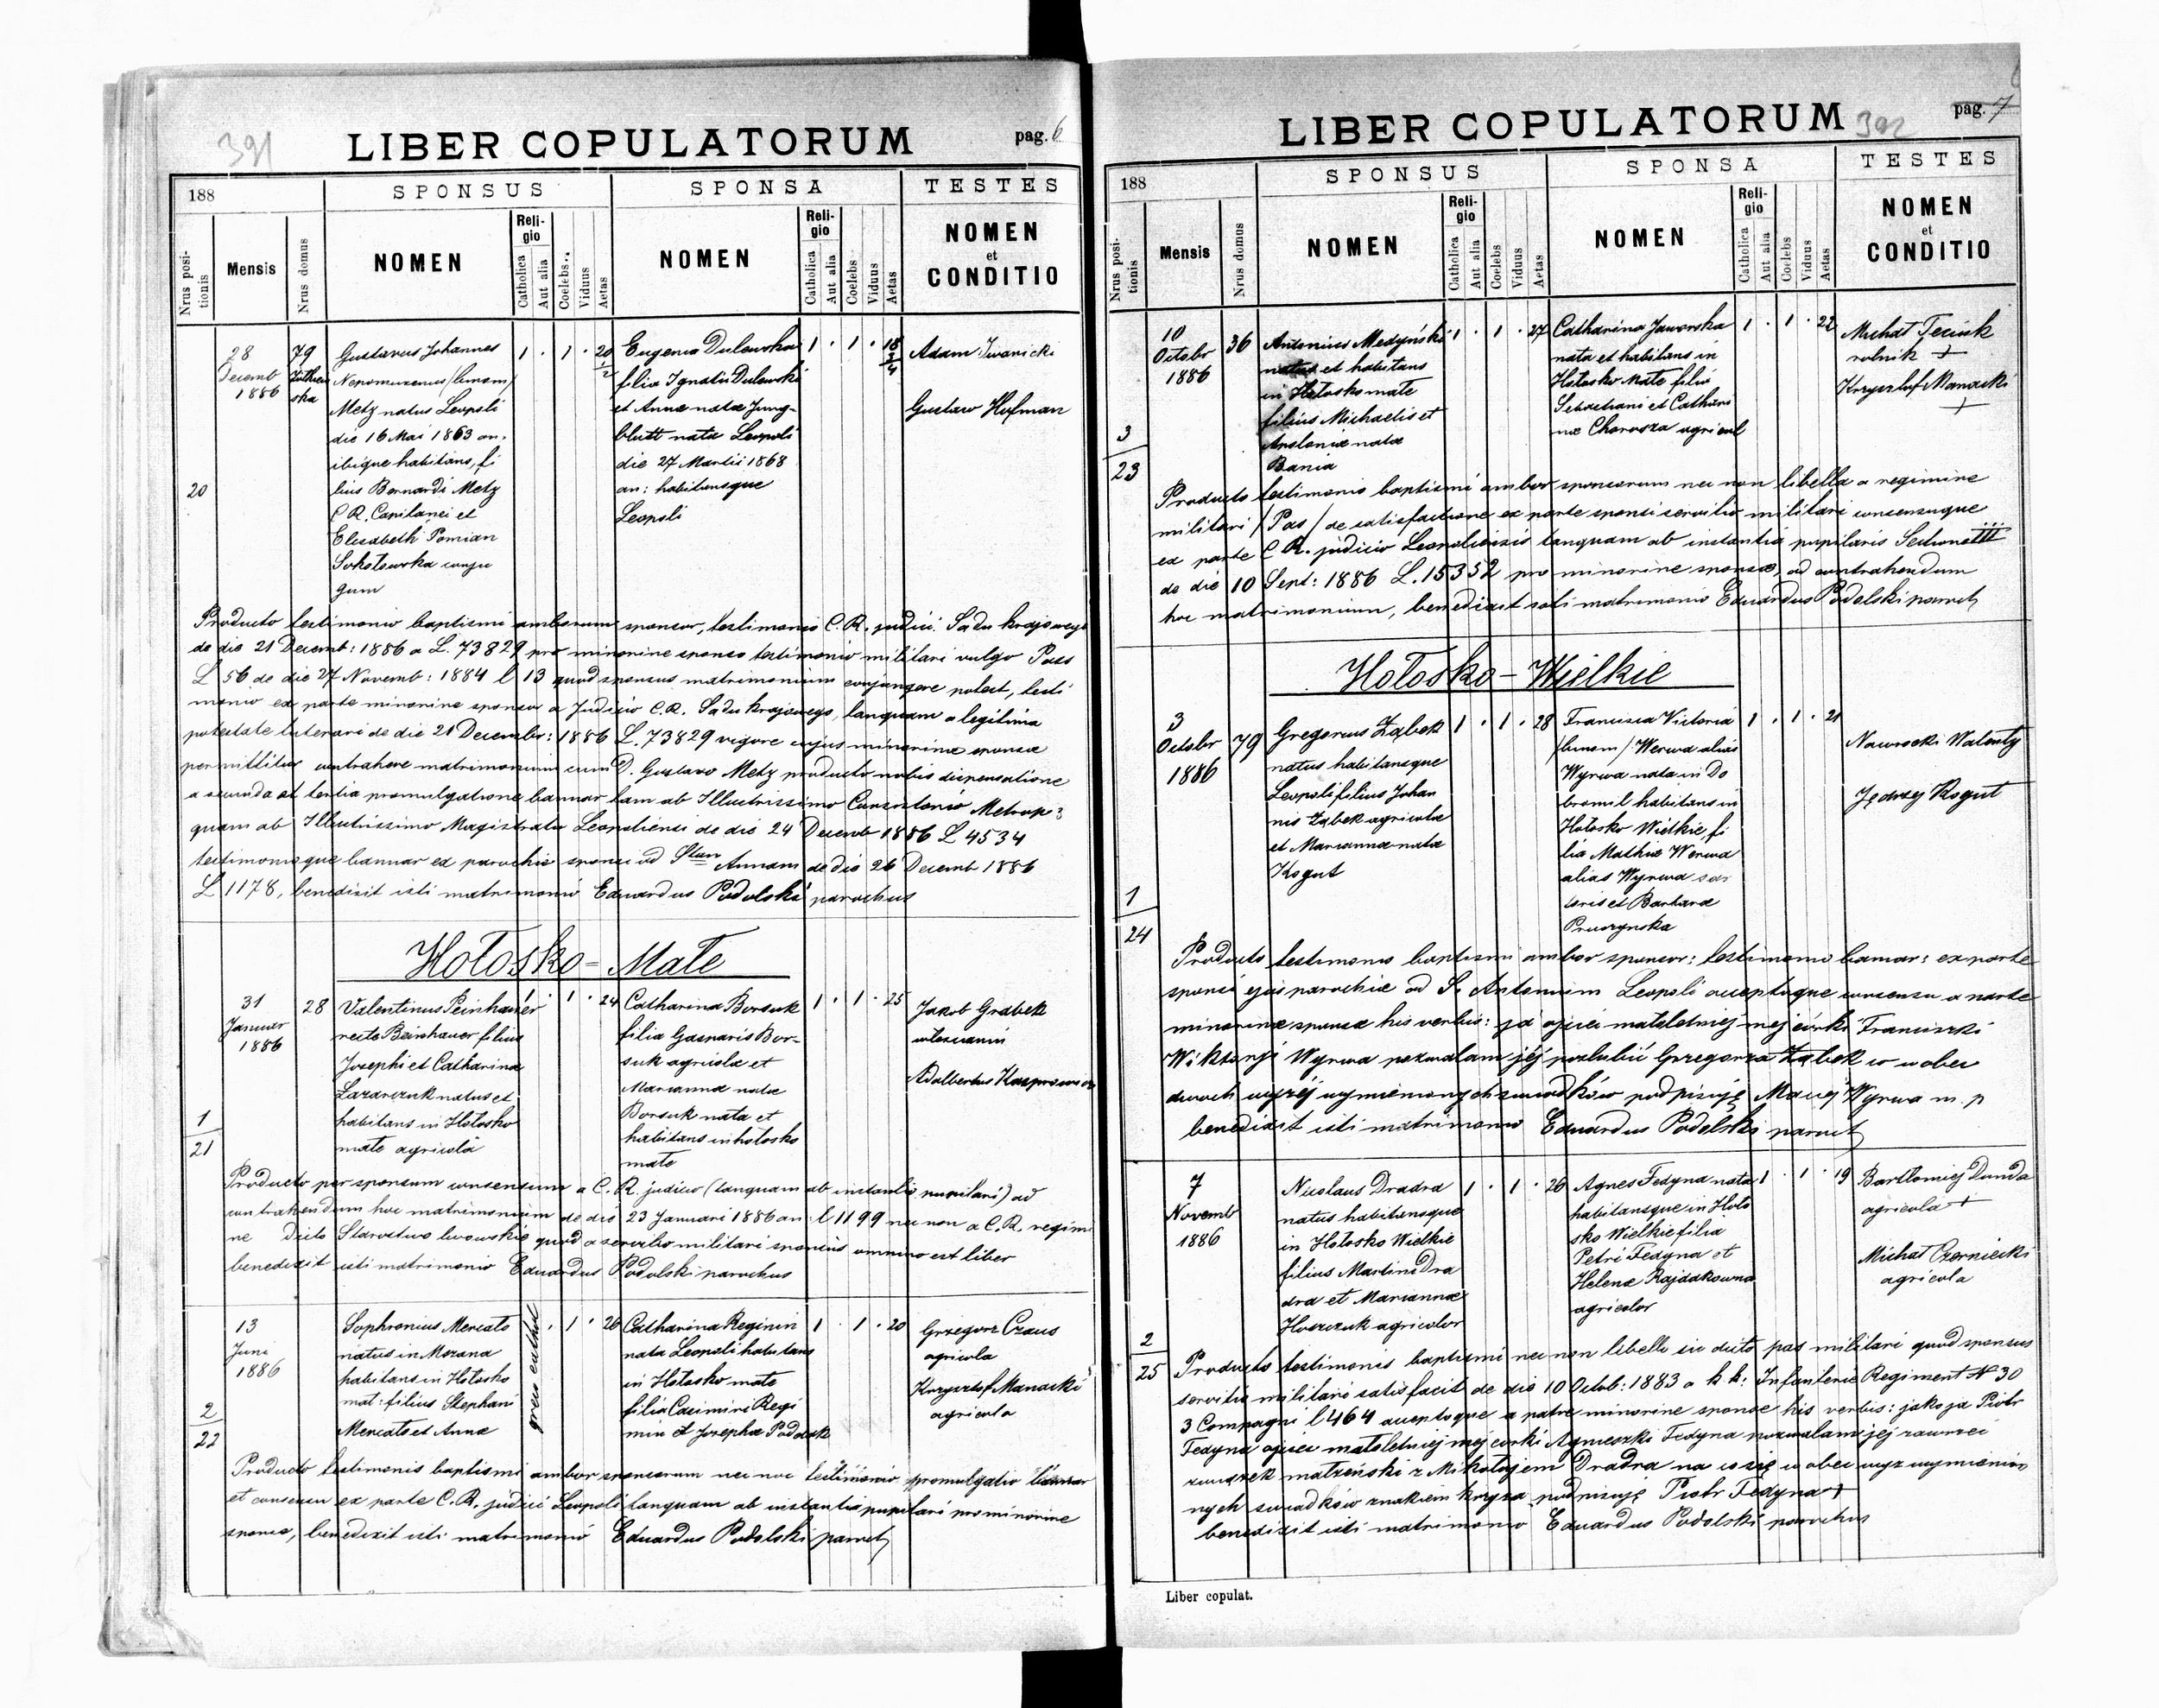 391
LIBER COPULATORUM
pag. 6
188
SPONSUS
SPONSA
TESTES
Nrus positionis
Mensis
Nrus domus
NOMEN
Religio
Catholica
Aut alia
Coelebs
Viduus
Aetas
NOMEN
Religio
Catholica
Aut alia
Coelebs
Viduus
Aetas
NOMEN
et
CONDITIO
20
28
Decemb
1886
79
Gustavus Johannes
Nepomucenus /binom/
Metz natus Leopoli
die 16 Mai 1863 an.
ibique habitans, fi
lius Bernardi Metz
C. R. Capitanei et
Elisabeth Pomian
Sokołowska conju
gum
1 . 1 .
Eugenia Dulewska
filia Ignatii Dulewski
et Annæ natæ Jung-
blutt nata Leopoli
die 27 Martii 1868
an: habitansque
Leopoli
1 . 1 .
Adam Iwanicki
Gustaw Hofman
Producto testimonio baptismi amborum sponsor, testimonio C. R. judici. Sadu krajowego
de die 21 Decemb: 1886 a L. 73829 pro minorine sponso testimonio militari vulgo Pass
L 56 de die 27 Novemb: 1884 l 13 quod sponsus matrimonium conjungere potest, testi
monio ex parte minorine sponsæ a Judicio C. R. Sadu krajowego, tanquam a legitima
potestate de die 21 Decembr: 1886 L. 73829 vigore cujus minorinæ sponsæ
permittitur contrahere matrimonium cum D. Gustavo Metz producto nobis dispensatione
a secunda et tertia promulgatione bannor tam ab Illustrissimo Consistorio Metrop:
quam ab Illustrissimo Magistratu Leopoliensi de die 24 Decemb 1886 L 4534
testimonioque bannor ex parochia sponsi ad Stam Annam de die 26 Decemb 1886
L 1178, benedixit isti matrimonio Eduardus Podolski parochus
Hołosko - Małe
1
21
31
Januar
1886
28
Valentinus Peinhauer
recte Beinhauer filius
Josephi et Catharina
Lazarczuk natus et
habitans in Hołosko
małe agricola
1 . 1 . 24
Catharina Borsuk
filia Gasparis Bor-
suk agricola et
Marianna nata
Borsuk nata et
habitans in hołosko
małe
1 . 1 . 25
Jakob Grabek
Adalbertus
Producto per sponsum consensum a C. R. judicio (tanquam ab instantio pupilari) ad
contrahendum hoc matrimonium de die 23 Januari 1886 an: l 1199 nec non a C. R. regimi
ne dicto Starostwo lwowskie quod a servitio militari sponsus omnino est liber
benedixit isti matrimonio Eduardus Podolski parochus
2
22
13
Juni
1886
Sophronius Mencato
natus in Mozana
habitans in Hołosko
mał: filius Stephani
Mencato et Annæ
. 1 . 26
Catharina Reginin
nata Leopoli habitans
in Hołosko małe
filia Casimiri Regi
nin et Josepha Podolsk
1 . 1 . 20
Grzegorz Czaus
agricola
Krzysztof Manacki
agricola
Producto testimonio baptismi ambor sponsorum nec non testimonio promulgatio bannor
et consensu ex parte C. R. judici Leopoli tanquam ab instantia pupilari pro minorine
sponsa, benedixit isti matrimonio Eduardus Podolski paroch
LIBER COPULATORUM
392
pag. 7
188
SPONSUS
SPONSA
TESTES
Nrus positionis
Mensis
Nrus domus
NOMEN
Religio
Catholica
Aut alia
Coelebs
Viduus
Aetas
NOMEN
Religio
Catholica
Aut alia
Coelebs
Viduus
Aetas
NOMEN
et
CONDITIO
3
23
10
Octobr
1886
36
Antonius Medyński
natus et habitans
in Hołosko małe
filius Michaelis et
Antonia nata
Bania
1 . 1 . 27
Catharina Jaworska
nata et habitans in
Hołosko Małe filia
Sebastiani et Cathari
næ Chorosza agricol
1 . 1 . 22
Michał
rolnik +
Krzysztof Manacki
+
Producto testimonio baptismi ambor sponsorum nec non libello a regimine
militari / Pas / de satisfactione ex parte sponsi servitio militari consensuque
ex parte C. R. judicio Leopoliensis tanquam ab instantia pupilaris Sectione III
de die 10 Sept: 1886 L. 15352 pro minorine sponsæ, ad contrahendum
hoc matrimonium, benedixit isti matrimonio Eduardus Podolski paroch
Hołosko - Wielkie
1
24
3
Octobr
1886
79
Gregorius Ząbek
natus habitansque
Leopoli filius Johan
nis Ząbek agricolæ
et Marianna nata
Kogut
1 . 1 . 28
Francisca Victoria
/binom/ Werwa alias
Wyrwa nata in Do
bromil habitans in
Hołosko Wielkie, fi
lia Mathiæ Werwa
alias Wyrwa sar
toris et Barbaræ
Pruszynska
1 . 1 . 21
Nawrocki Walenty
Jędrzej Kogut
Producto testimonio baptismi ambor sponsor: testimonio bannor: ex parte
sponsi ejus parochiæ ad S. Antonium Leopoli acceptoque consensu a parte
minorinæ sponsæ his verbis: ja ojciec małoletniej mej córki Franciszki
Wiktorji Wyrwa pozwalam jéj poślubić Grzegorza Ząbek w obec
dwoch wyżéj wymienionych świadków podpisuję Maciej Wyrwa m. p
benedixit isti matrimonio Eduardus Podolski paroch
2
25
7
Novemb
1886
Nicolaus Dradra
natus habitansque
in Hołosko Wielkie
filius Martini Dra
dra et Mariannæ
Huszczuk agricolor
1 . 1 . 26
Agnes Fedyna nata
habitansque in Hoło
sko Wielkie filia
Petri Fedyna et
Helenæ Rajdakowna
agricolor
1 . 1 . 19
Bartłomiej Dunda
agricola +
Michał Czerniecki
agricola
Producto testimonio baptismi nec non libello sic dicto pas militari quod sponsus
servitio militari satisfacit de die 10 Octob: 1883 a k k: Infanterie Regiment N 30
3 Compagni l 464 acceptoque a patre minorine sponsæ his verbis: jako ja Piotr
Fedyna ojciec małoletniej mej córki Agnieszki Fedyna pozwalam jéj zawrzeć
związek małżeński z Mikołajem Dradra na co się w obec wyż wymienio
nych świadków znakiem krzyża podpisuję Piotr Fedyna +
benedixit isti matrimonio Eduardus Podolski parochus
Liber copulat.